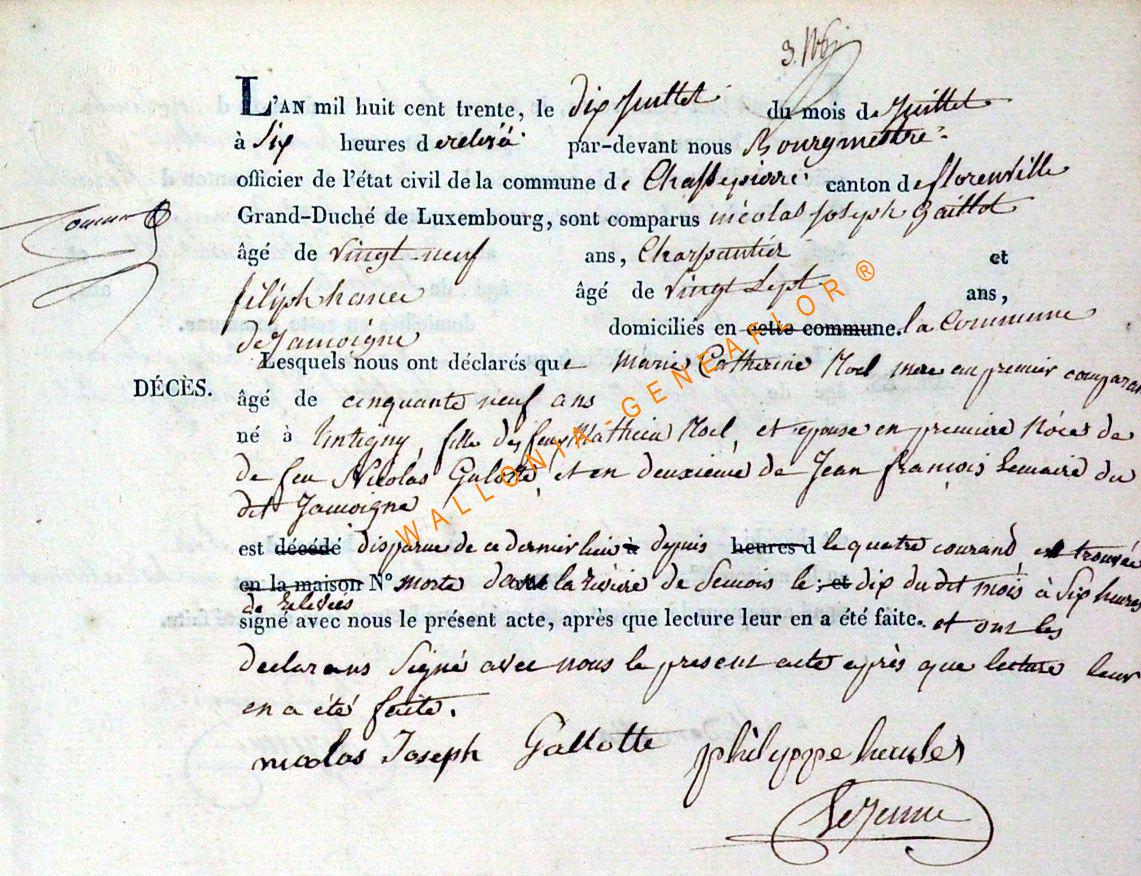 L'AN mil huit cent trente, le dix juillet du mois de Juillet
à Six heures de relevé par-devant nous Bourgmestre
officier de l'état civil de la commune de Chassepierre canton de florenville
Grand-Duché de Luxembourg, sont comparus nicolas joseph Gaillot
âgé de vingt neuf ans, Charpantier et
âgé de vingt Sept ans,
domiciliés en cette commune. la Commune
de Jamoigne
Lesquels nous ont déclarés que marie Catherine Noel mere au premier comparan
DÉCÈS.
âgé de cinquante neuf ans
né à tintigny, fille des feux Mathieu Noel, et epouse en premiere Nôces de
de feu Nicolas Galotte, et en deuxieme de Jean françois Lemaire du
dit Jamoigne
est décédé disparue de ce dernier lieu à depuis heures d le quatre courand et trouvée
en la maison N° morte dans la riviere de Semois le ; et dix du dit mois à Six heures
de relevées
signé avec nous le présent acte, après que lecture leur en a été faite. et ont les
declarans Signé avec nous le present acte après que lecture leur
en a été faite.
nicolas Joseph Gallotte philippe
Lejeune
WALLONIA-GENEARLOR®